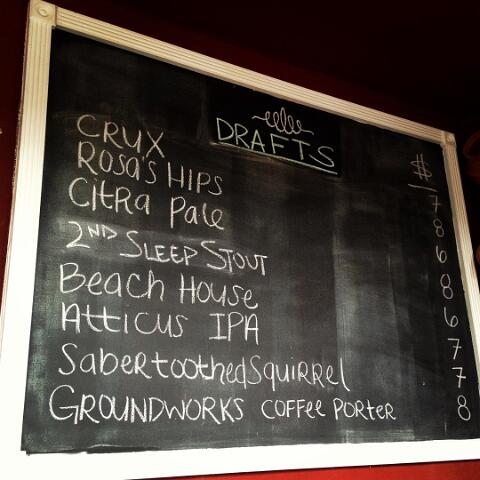 DRAFTS
$
CRUX 7
Rosa's Hips 8
Citra Pale 6
2ND Sleep Stout 8
Beach House 6
Atticus IPA 7
Sabertoothed Squirrel 7
Groundworks Coffee Porter 8